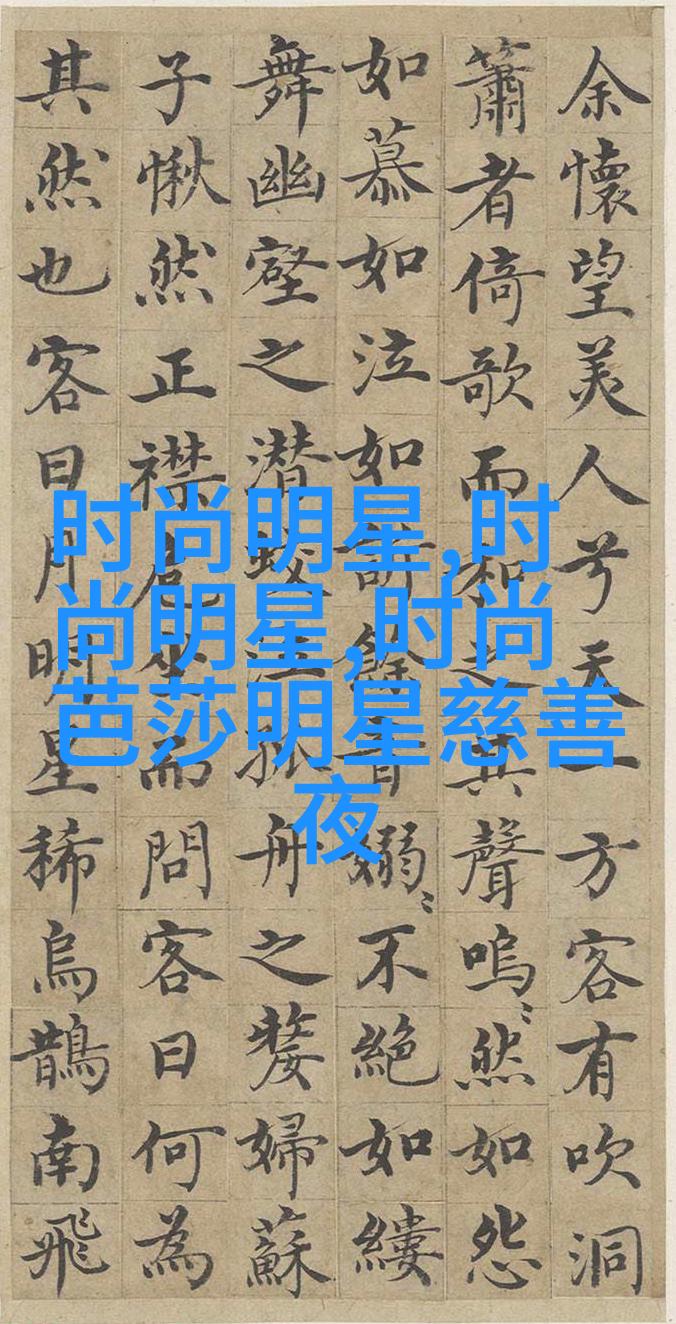 余懷望美人兮天一方客有吹洞
簫者倚歌而和之其聲嗚〻然如怨
如慕如泣如訴餘音嫋〻不絕如縷
舞幽壑之潜蛟泣孤舟之嫠婦蘇
子愀然正襟危坐而問客曰何為
其然也客曰月明星稀烏鵲南飛
时尚明星,时
尚明星,时尚
芭莎明星慈善
夜